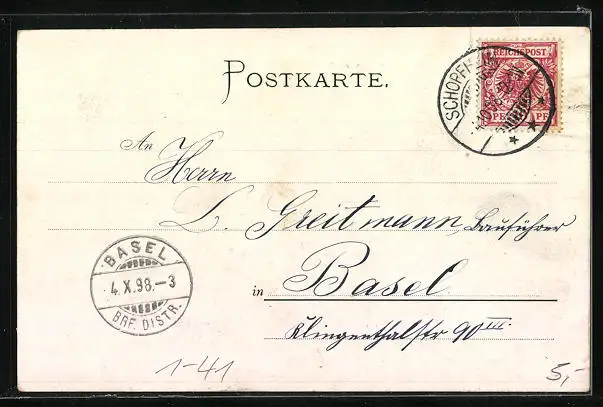 REICHSPOST
POSTKARTE.
SCHOPFH
An
Herrn
L. Greitmann, Bauführer
in Basel
Klingenthalstr 90 III.
BASEL
4.X.98.–3
BRF. DISTR.
1-41
5,-